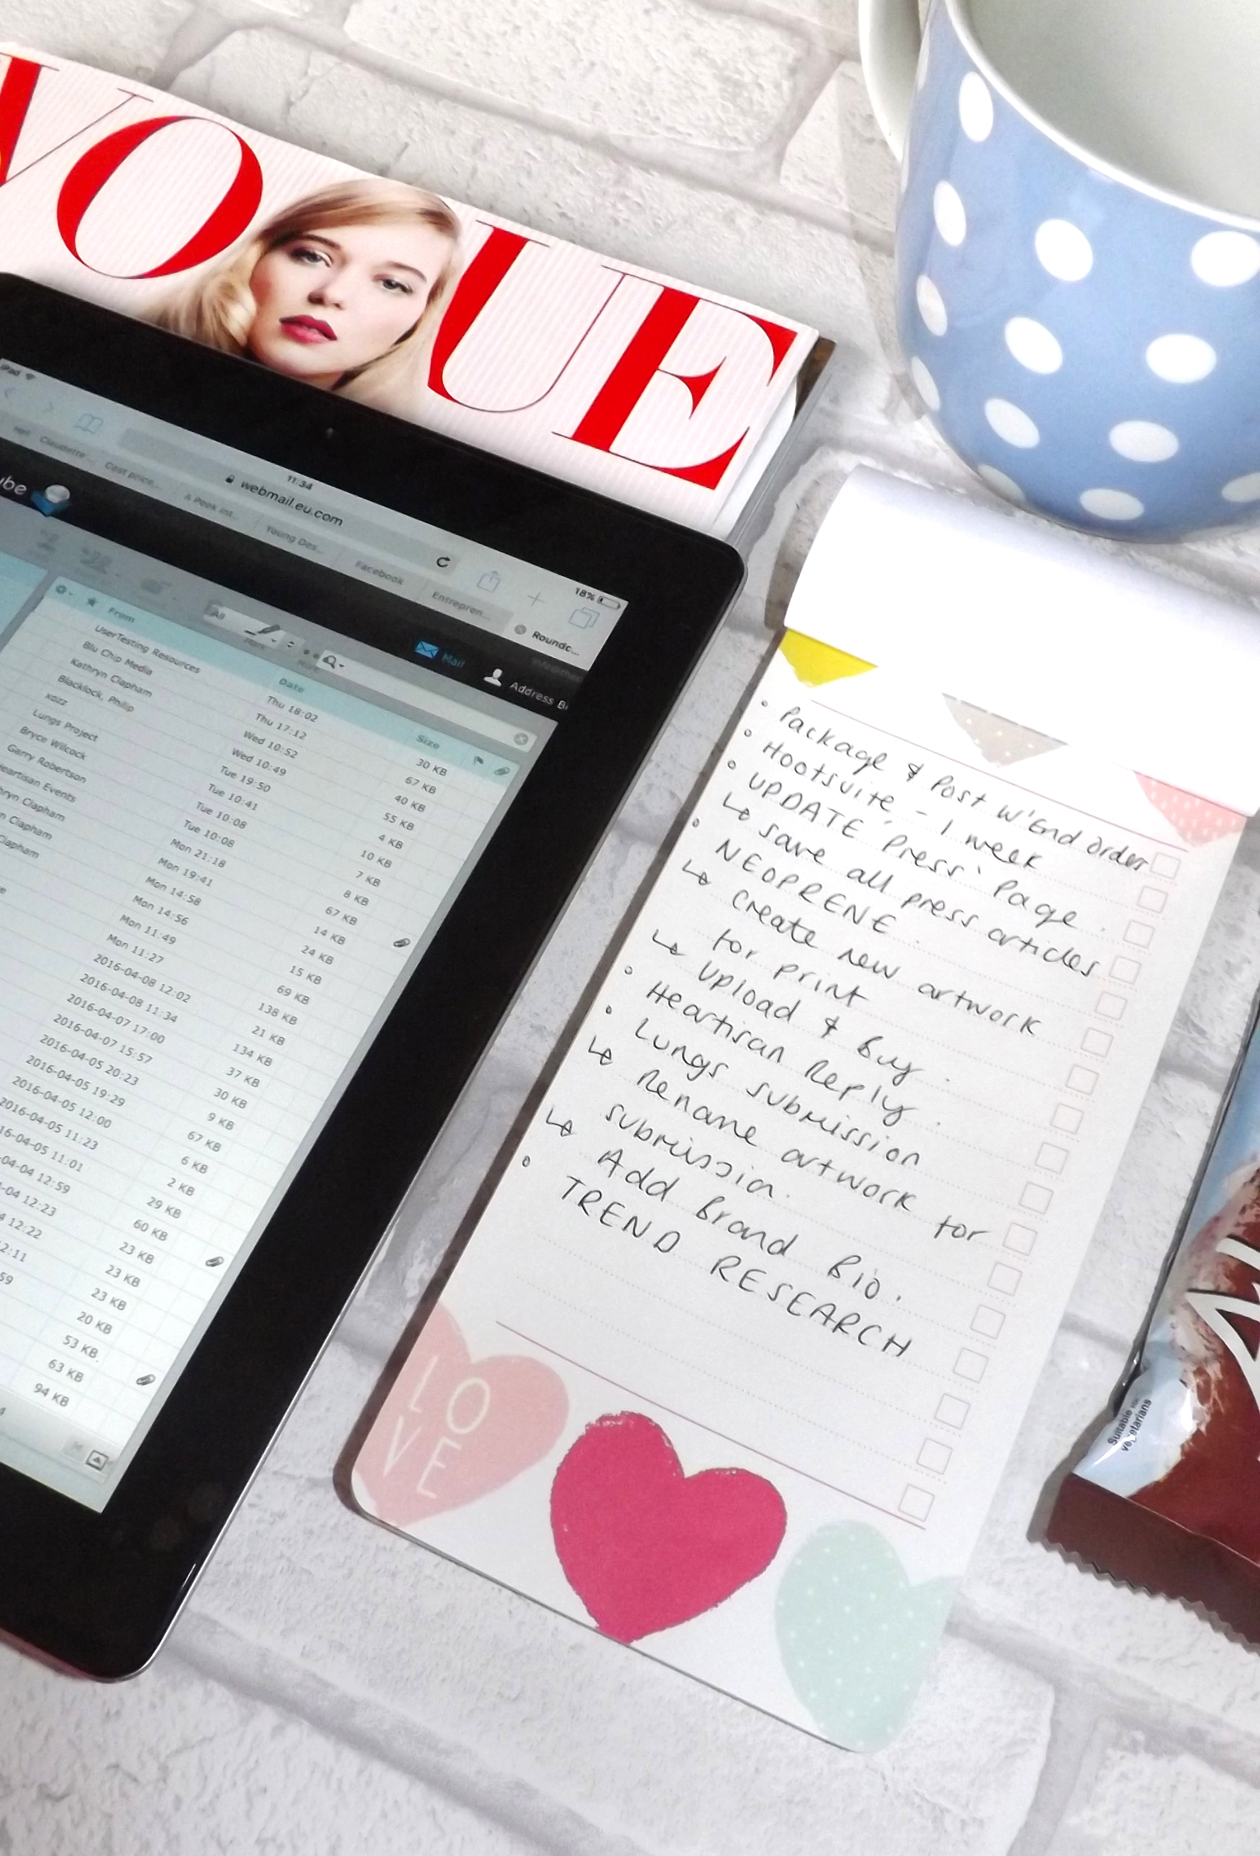 VOGUE
iPad
11:34
18%
webmail.eu.com
Claudette
Cost price...
A Peek int...
Young Des...
Facebook
Entrepren...
Roundc...
ube
All
Mail
Address B
From
Date
Size
UserTesting Resources
Thu 18:02
30 KB
Blu Chip Media
Thu 17:12
67 KB
Kathryn Clapham
Wed 10:52
40 KB
Blacklock, Philip
Wed 10:49
55 KB
xozz
Tue 19:50
4 KB
Lungs Project
Tue 10:41
10 KB
Bryce Wilcock
Tue 10:08
7 KB
Garry Robertson
Tue 10:08
8 KB
Heartisan Events
Mon 21:18
67 KB
thryn Clapham
Mon 19:41
14 KB
hryn Clapham
Mon 14:58
24 KB
Clapham
Mon 14:56
15 KB
Mon 11:49
69 KB
Mon 11:27
138 KB
2016-04-08 12:02
21 KB
2016-04-08 11:34
134 KB
2016-04-07 17:00
37 KB
2016-04-07 15:57
30 KB
2016-04-05 20:23
9 KB
2016-04-05 19:29
67 KB
2016-04-05 12:00
6 KB
2016-04-05 11:23
2 KB
16-04-05 11:01
29 KB
-04-04 12:59
60 KB
-04 12:23
23 KB
12:22
23 KB
2:11
23 KB
59
20 KB
53 KB
63 KB
94 KB
• Package & Post W'End Order
• Hootsuite - 1 week
• UPDATE 'Press' Page.
↳ Save all press articles
• NEOPRENE.
↳ Create new artwork
for print
↳ Upload & Buy.
• Heartisan Reply.
• Lungs submission
↳ Rename artwork for
submission.
↳ Add Brand Bio.
• TREND RESEARCH
LO
VE
Suitable for
vegetarians